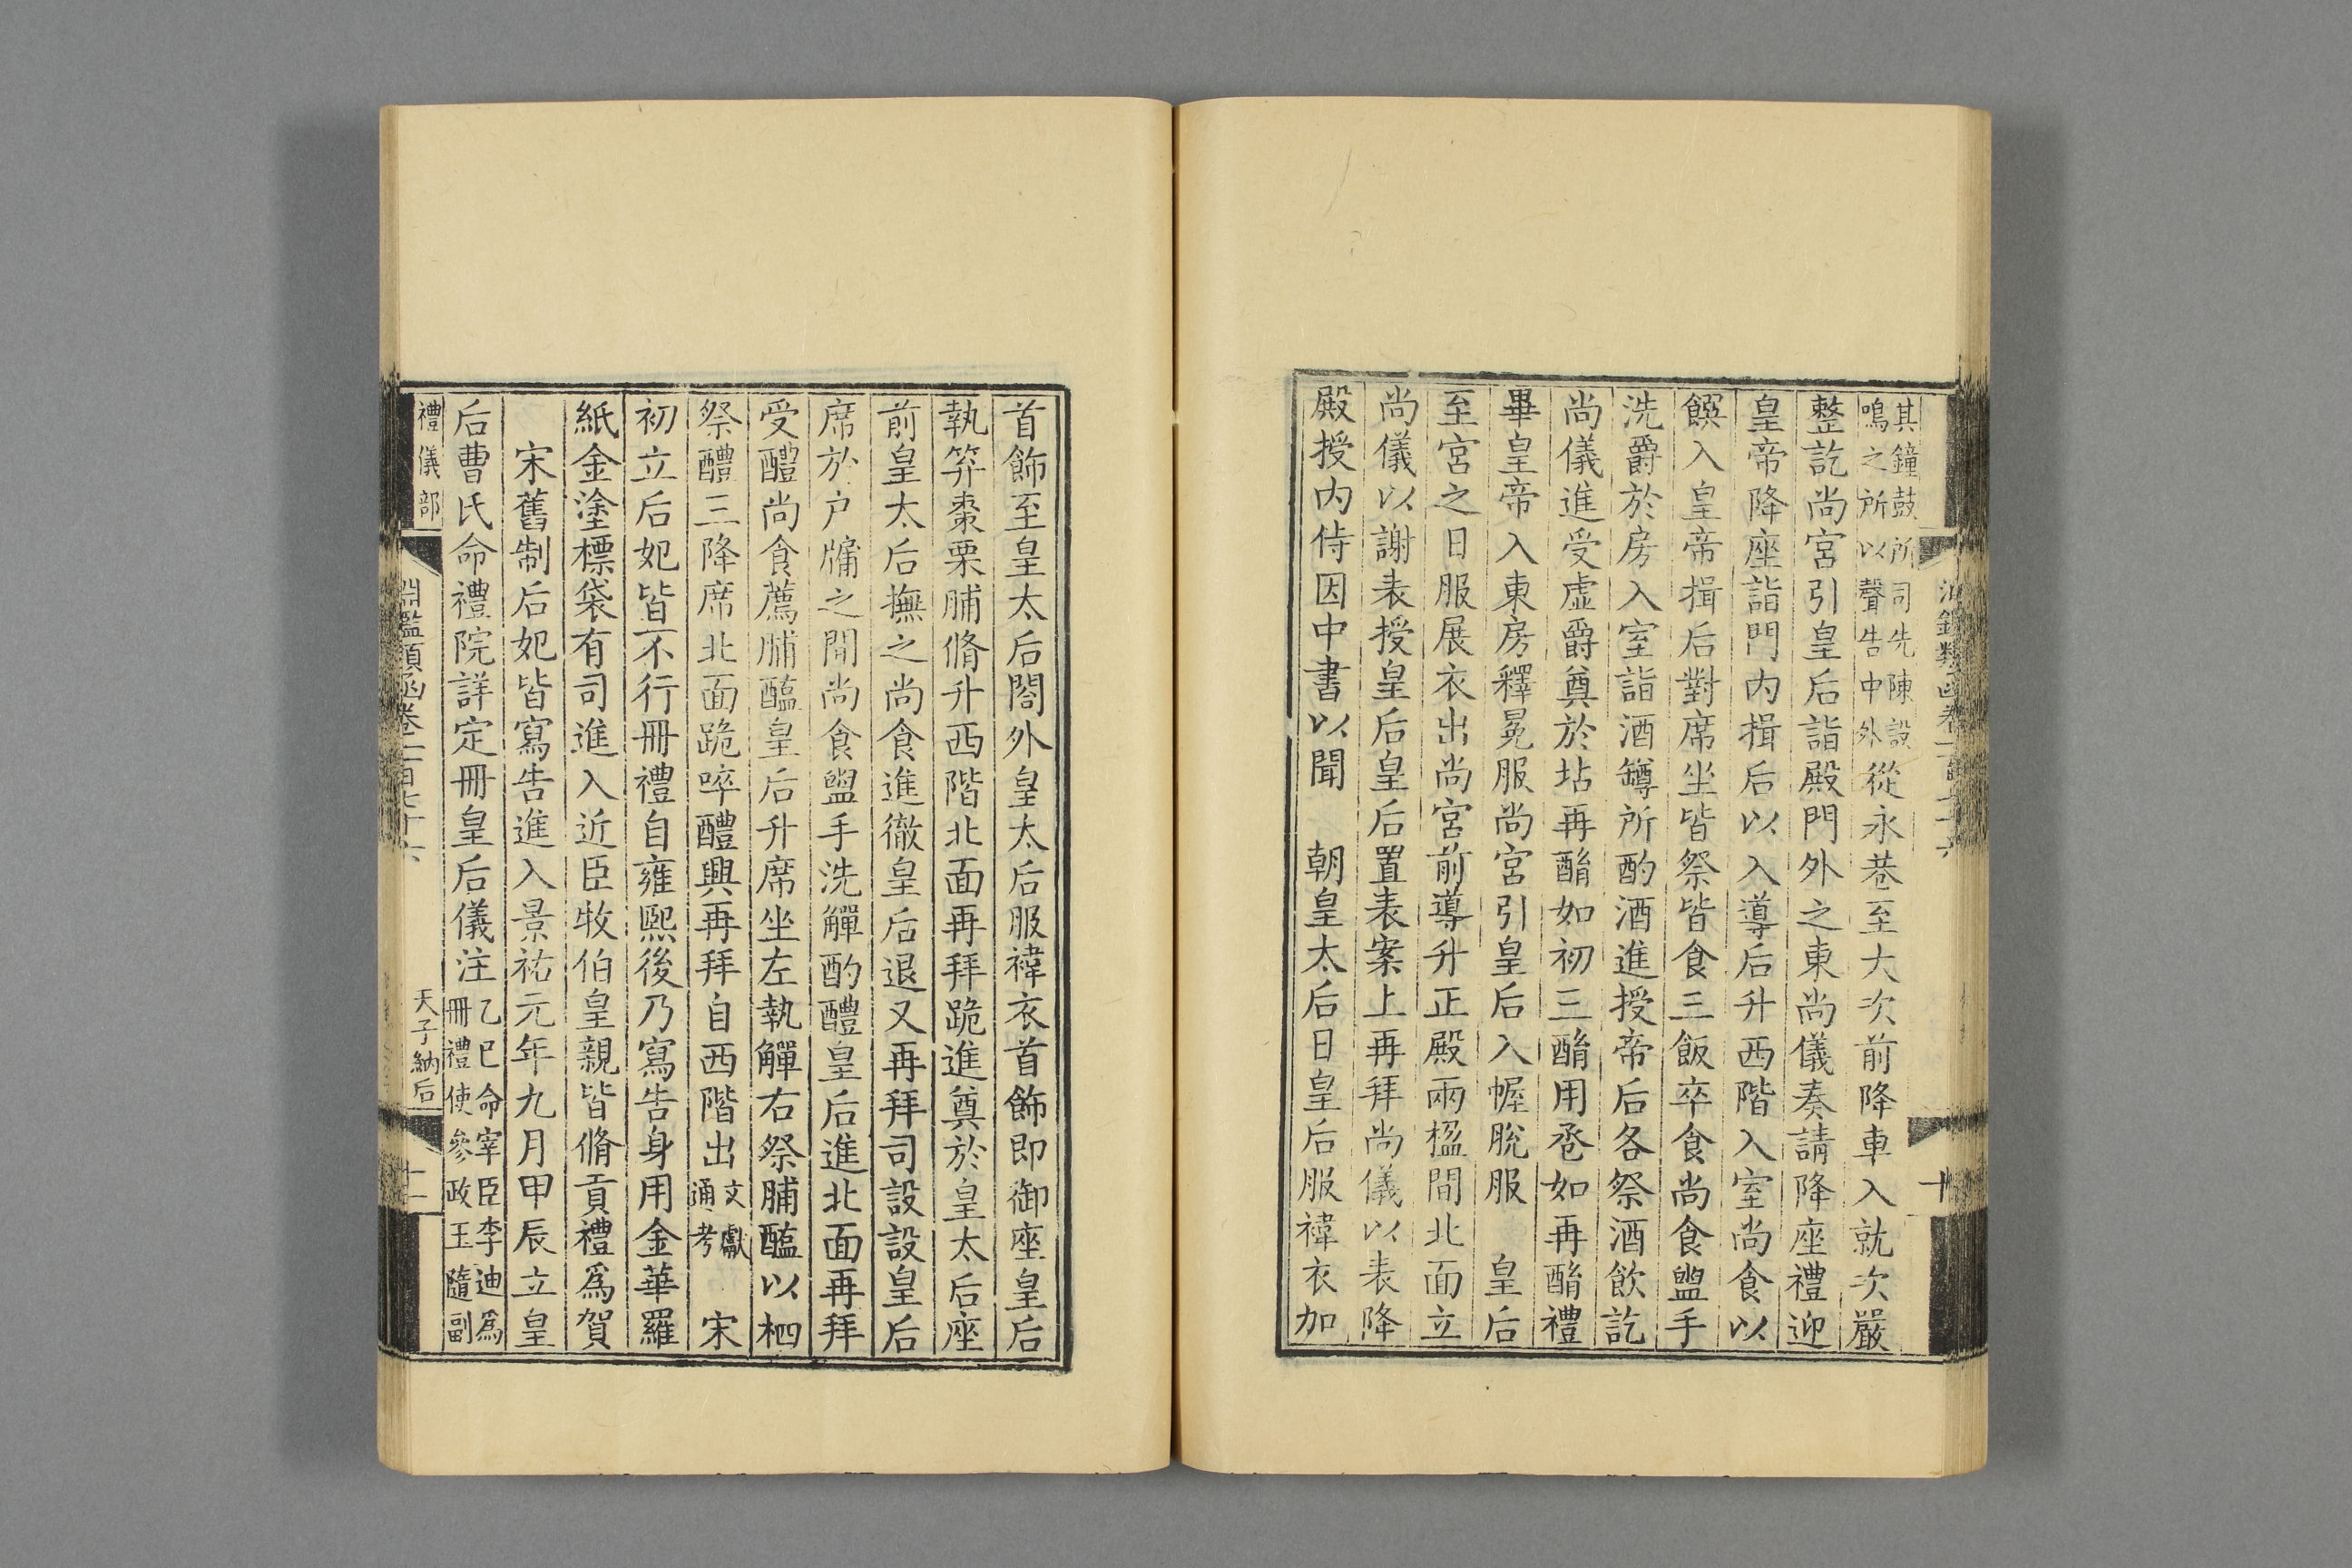 其鐘鼓所司先陳設
鳴之所以聲告中外從永巷至大次前降車入就次嚴
整訖尚宮引皇后詣殿門外之東尚儀奏請降座禮迎
皇帝降座詣門內揖后以入導后升西階入室尚食以
饌入皇帝揖后對席坐皆祭皆食三飯卒食尚食盥手
洗爵於房入室詣酒罇所酌酒進授帝后各祭酒飲訖
尚儀進受虛爵奠於坫再酳如初三酳用卺如再酳禮
畢皇帝入東房釋冕服尚宮引皇后入幄脫服　皇后
至宮之日服展衣出尚宮前導升正殿兩楹間北面立
尚儀以謝表授皇后皇后置表案上再拜尚儀以表降
殿授內侍因中書以聞　朝皇太后日皇后服褘衣加
首飾至皇太后閤外皇太后服褘衣首飾即御座皇后
執笲棗栗脯脩升西階北面再拜跪進奠於皇太后座
前皇太后撫之尚食進徹皇后退又再拜司設設皇后
席於戶牖之間尚食盥手洗觶酌醴皇后進北面再拜
受醴尚食薦脯醢皇后升席坐左執觶右祭脯醢以柶
祭醴三降席北面跪啐醴興再拜自西階出文獻通考　宋
初立后妃皆不行冊禮自雍熙後乃寫告身用金華羅
紙金塗標袋有司進入近臣牧伯皇親皆脩貢禮爲賀
宋舊制后妃皆寫告進入景祐元年九月甲辰立皇
后曹氏命禮院詳定冊皇后儀注乙巳命宰臣李迪爲
冊禮使參政王隨副
禮儀部
淵鑑類函卷一百七十六
天子納后
十一